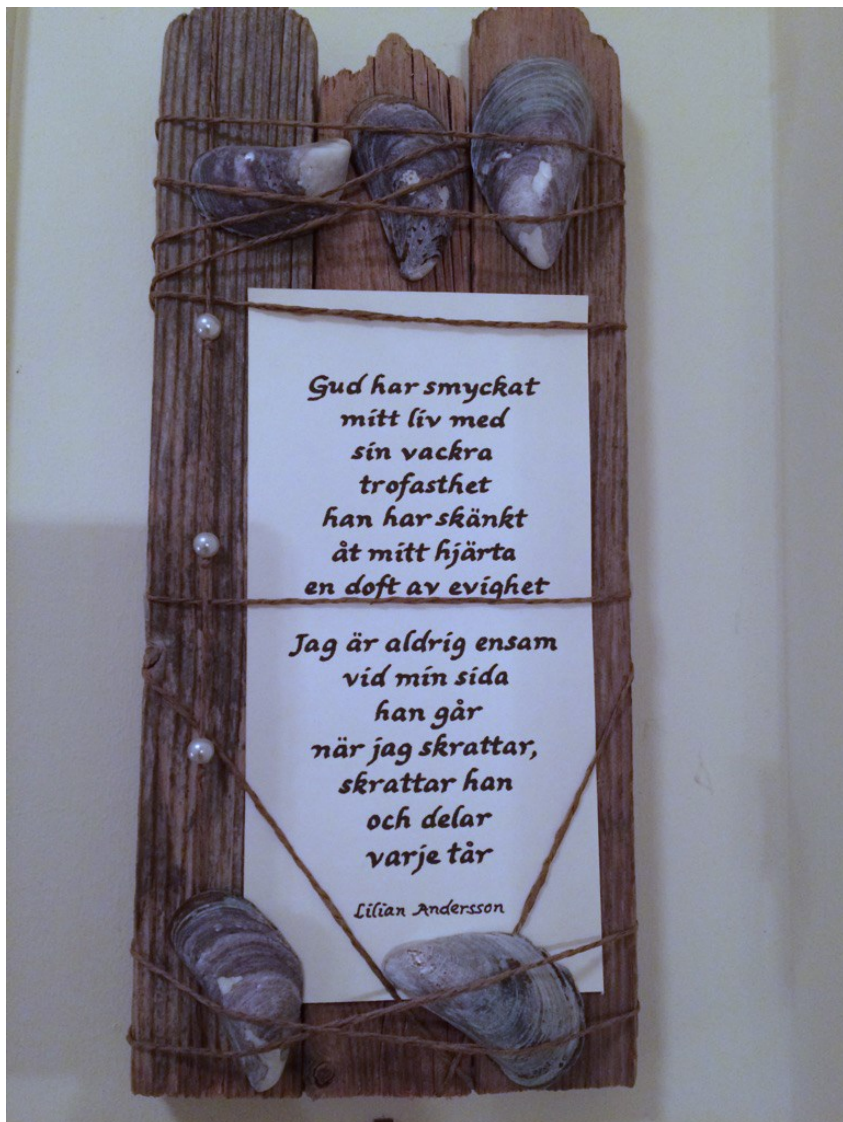 Gud har smyckat
mitt liv med
sin vackra
trofasthet
han har skänkt
åt mitt hjärta
en doft av evighet
Jag är aldrig ensam
vid min sida
han går
när jag skrattar,
skrattar han
och delar
varje tår
Lilian Andersson